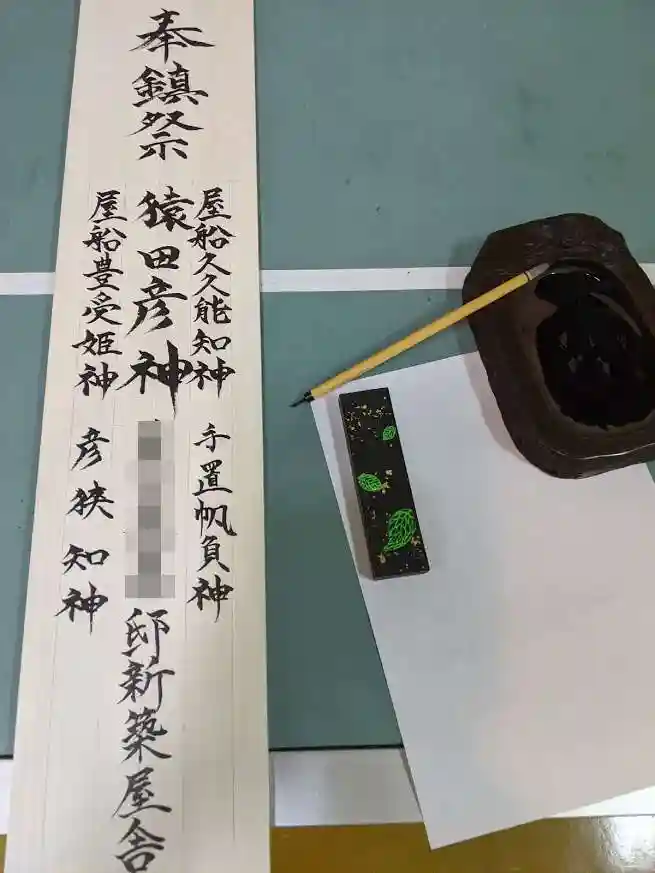 奉鎮祭
屋船久久能知神 手置帆負神
猿田彦神 邸新築屋舎
屋船豊受姫神 彦狭知神